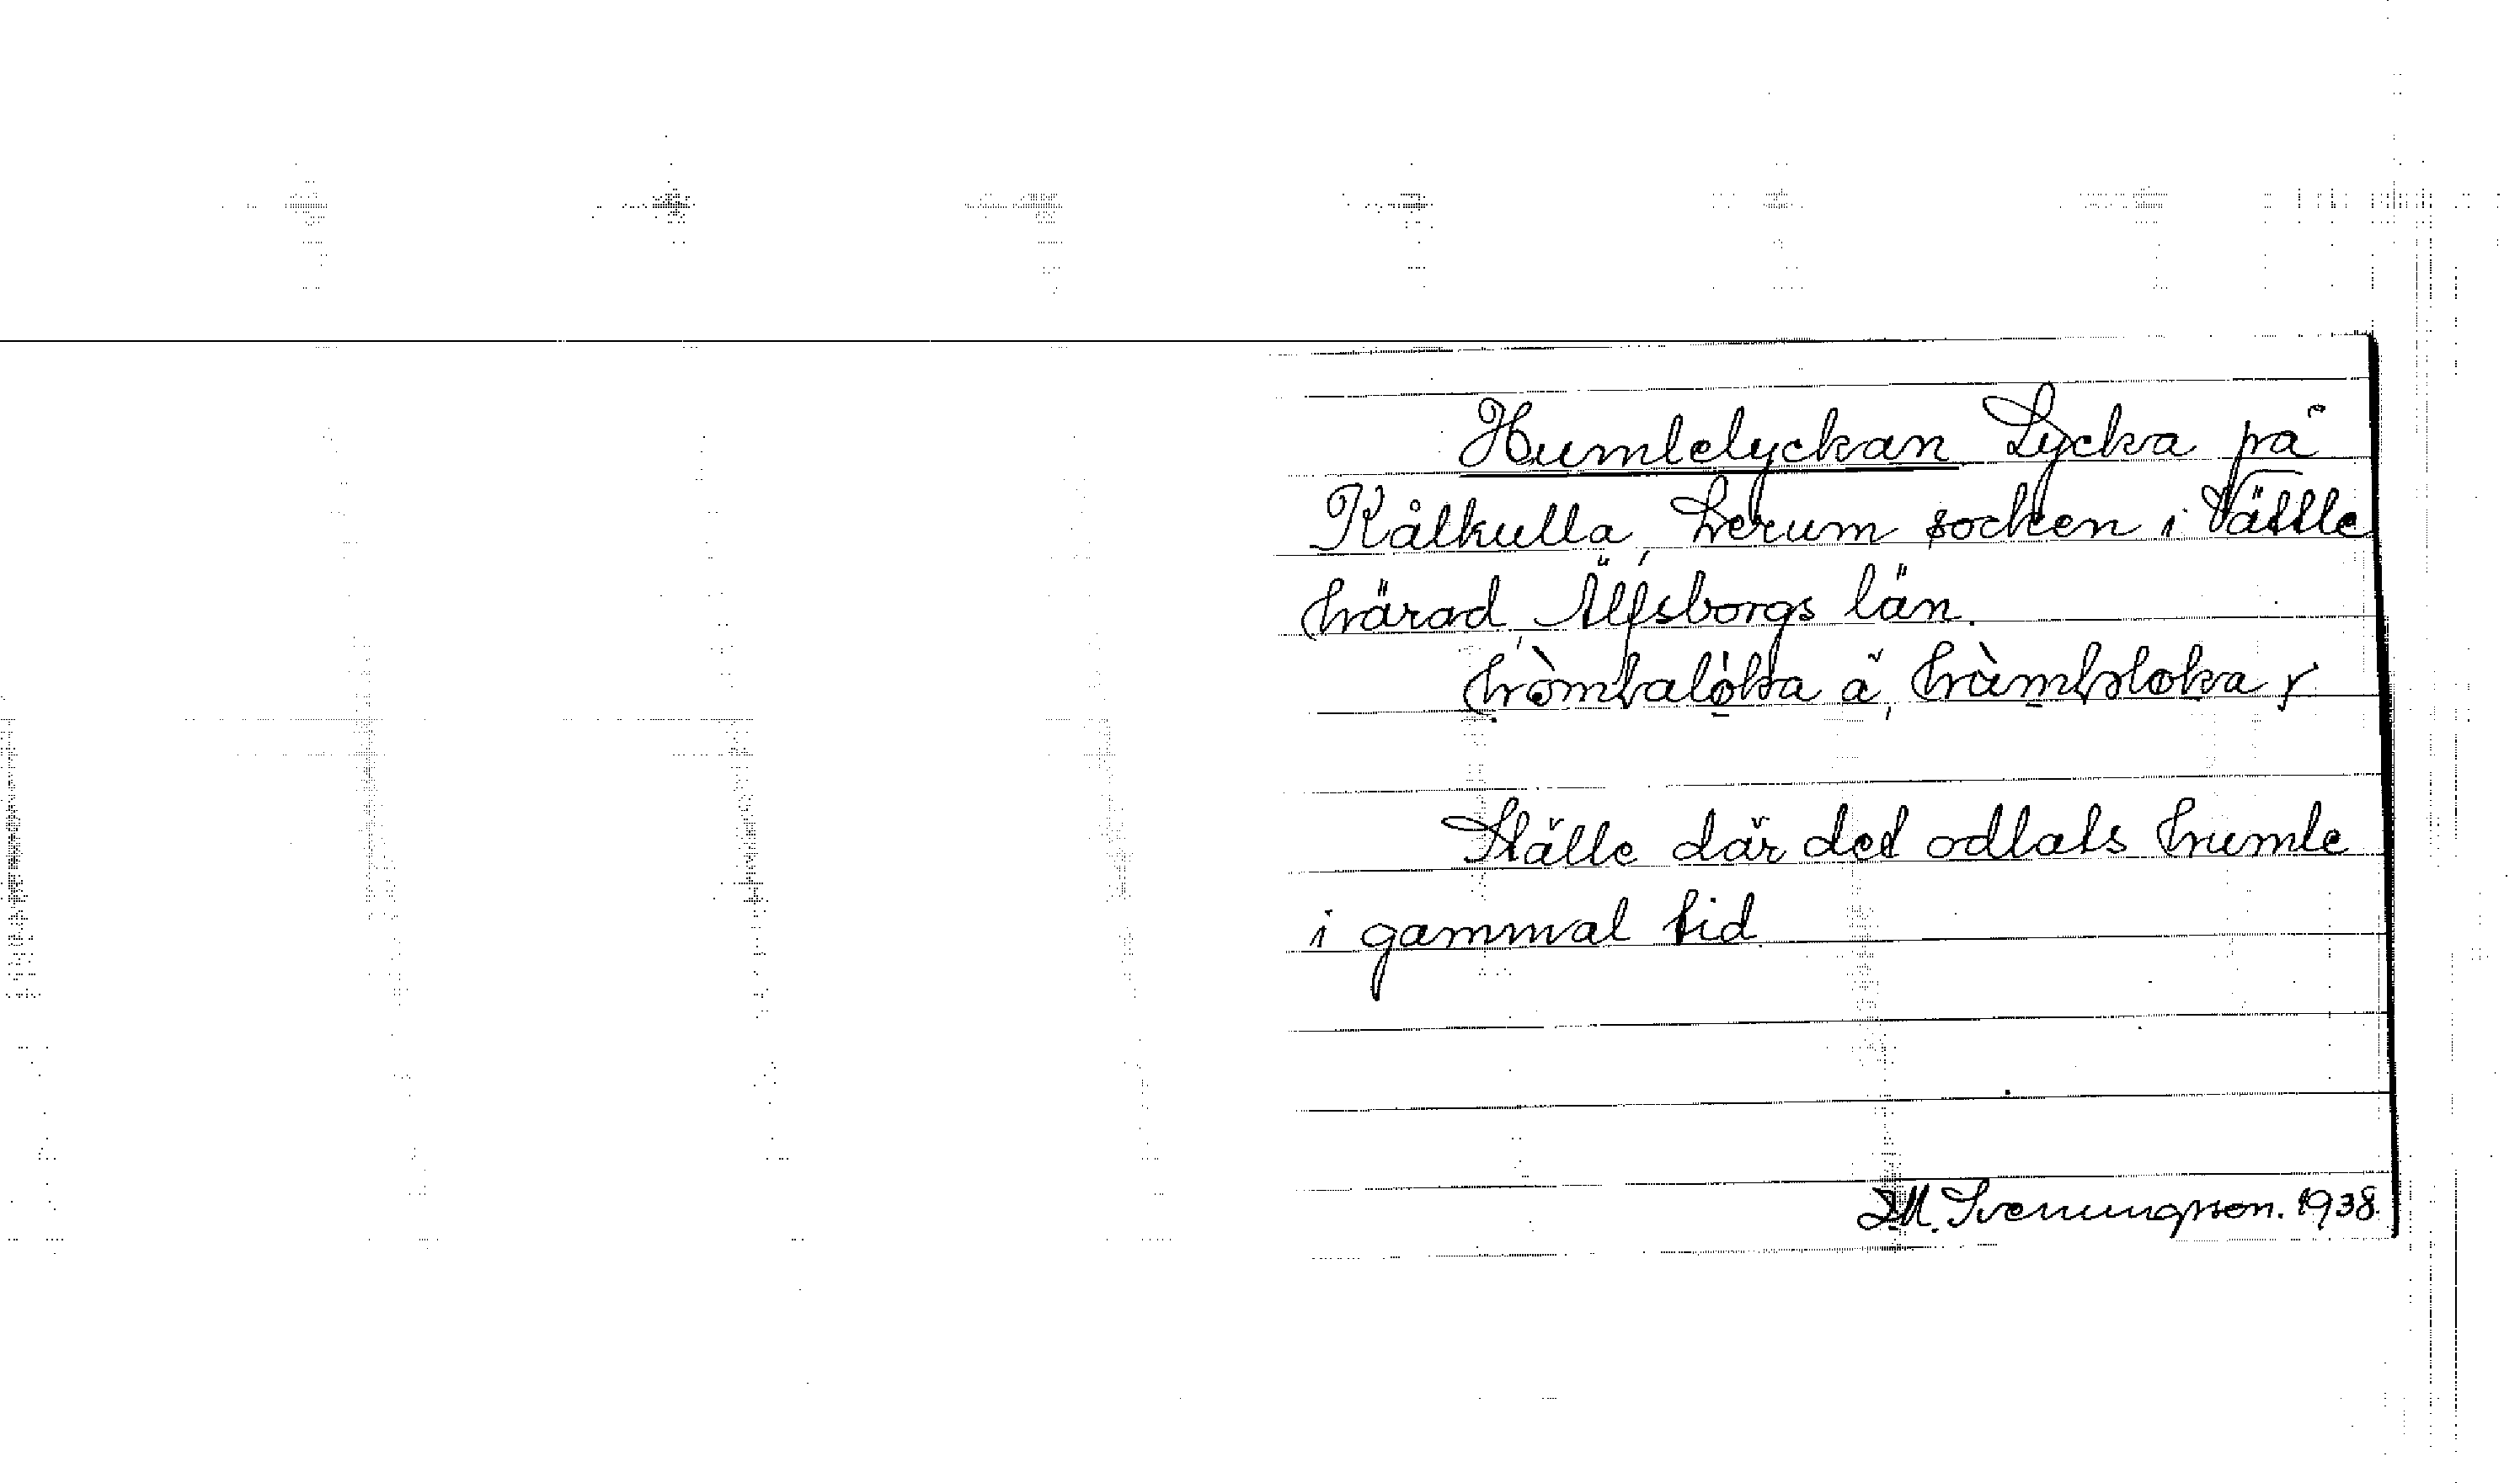 Humlelyckan Lycka på
Kålkulla, Lerum socken i Vättle
härad, Älfsborgs län.
Ställe där det odlats humle
i gammal tid
Svenungsson. 1938.